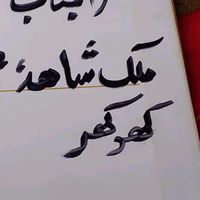 ملک شاھد
کھرکھر